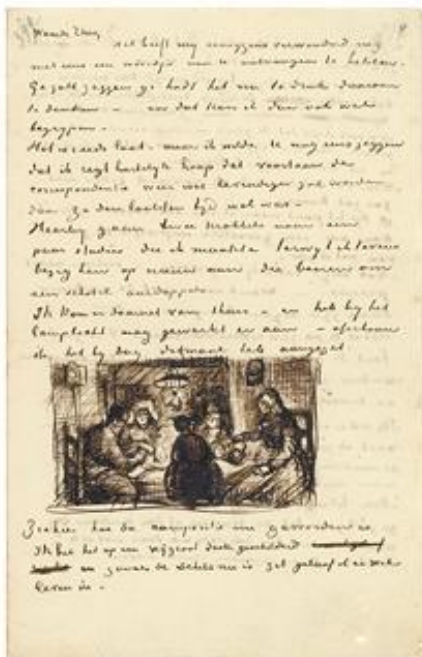 Waarde Theo,
Het heeft mij eenigzins verwonderd nog
niet eens een woordje van U ontvangen te hebben.
Ge zult zeggen ge hadt het nu te druk daaraan
te denken – en dat kan ik dan ook wel
begrijpen –
Het is reeds laat – maar ik wilde U nog eens zeggen
dat ik regt hartelijk hoop dat voortaan de
correspondentie weer wat levendiger zal worden
dan ze den laatsten tijd wel was –
Hierbij gaan twee krabbels naar een
paar studies die ik maakte terwijl ik tevens
bezig ben op nieuw aan die boeren om
een schotel aardappels
Ik kom er daarnet van thuis – en heb bij het
lamplicht nog gewerkt er aan – ofschoon
ik het bij dag ditmaal heb aangezet
Ziehier hoe de compositie nu geworden is.
Ik heb het op een vrij groot doek geschilderd
en zooals de schets nu is zit geloof ik er wel
leven in –